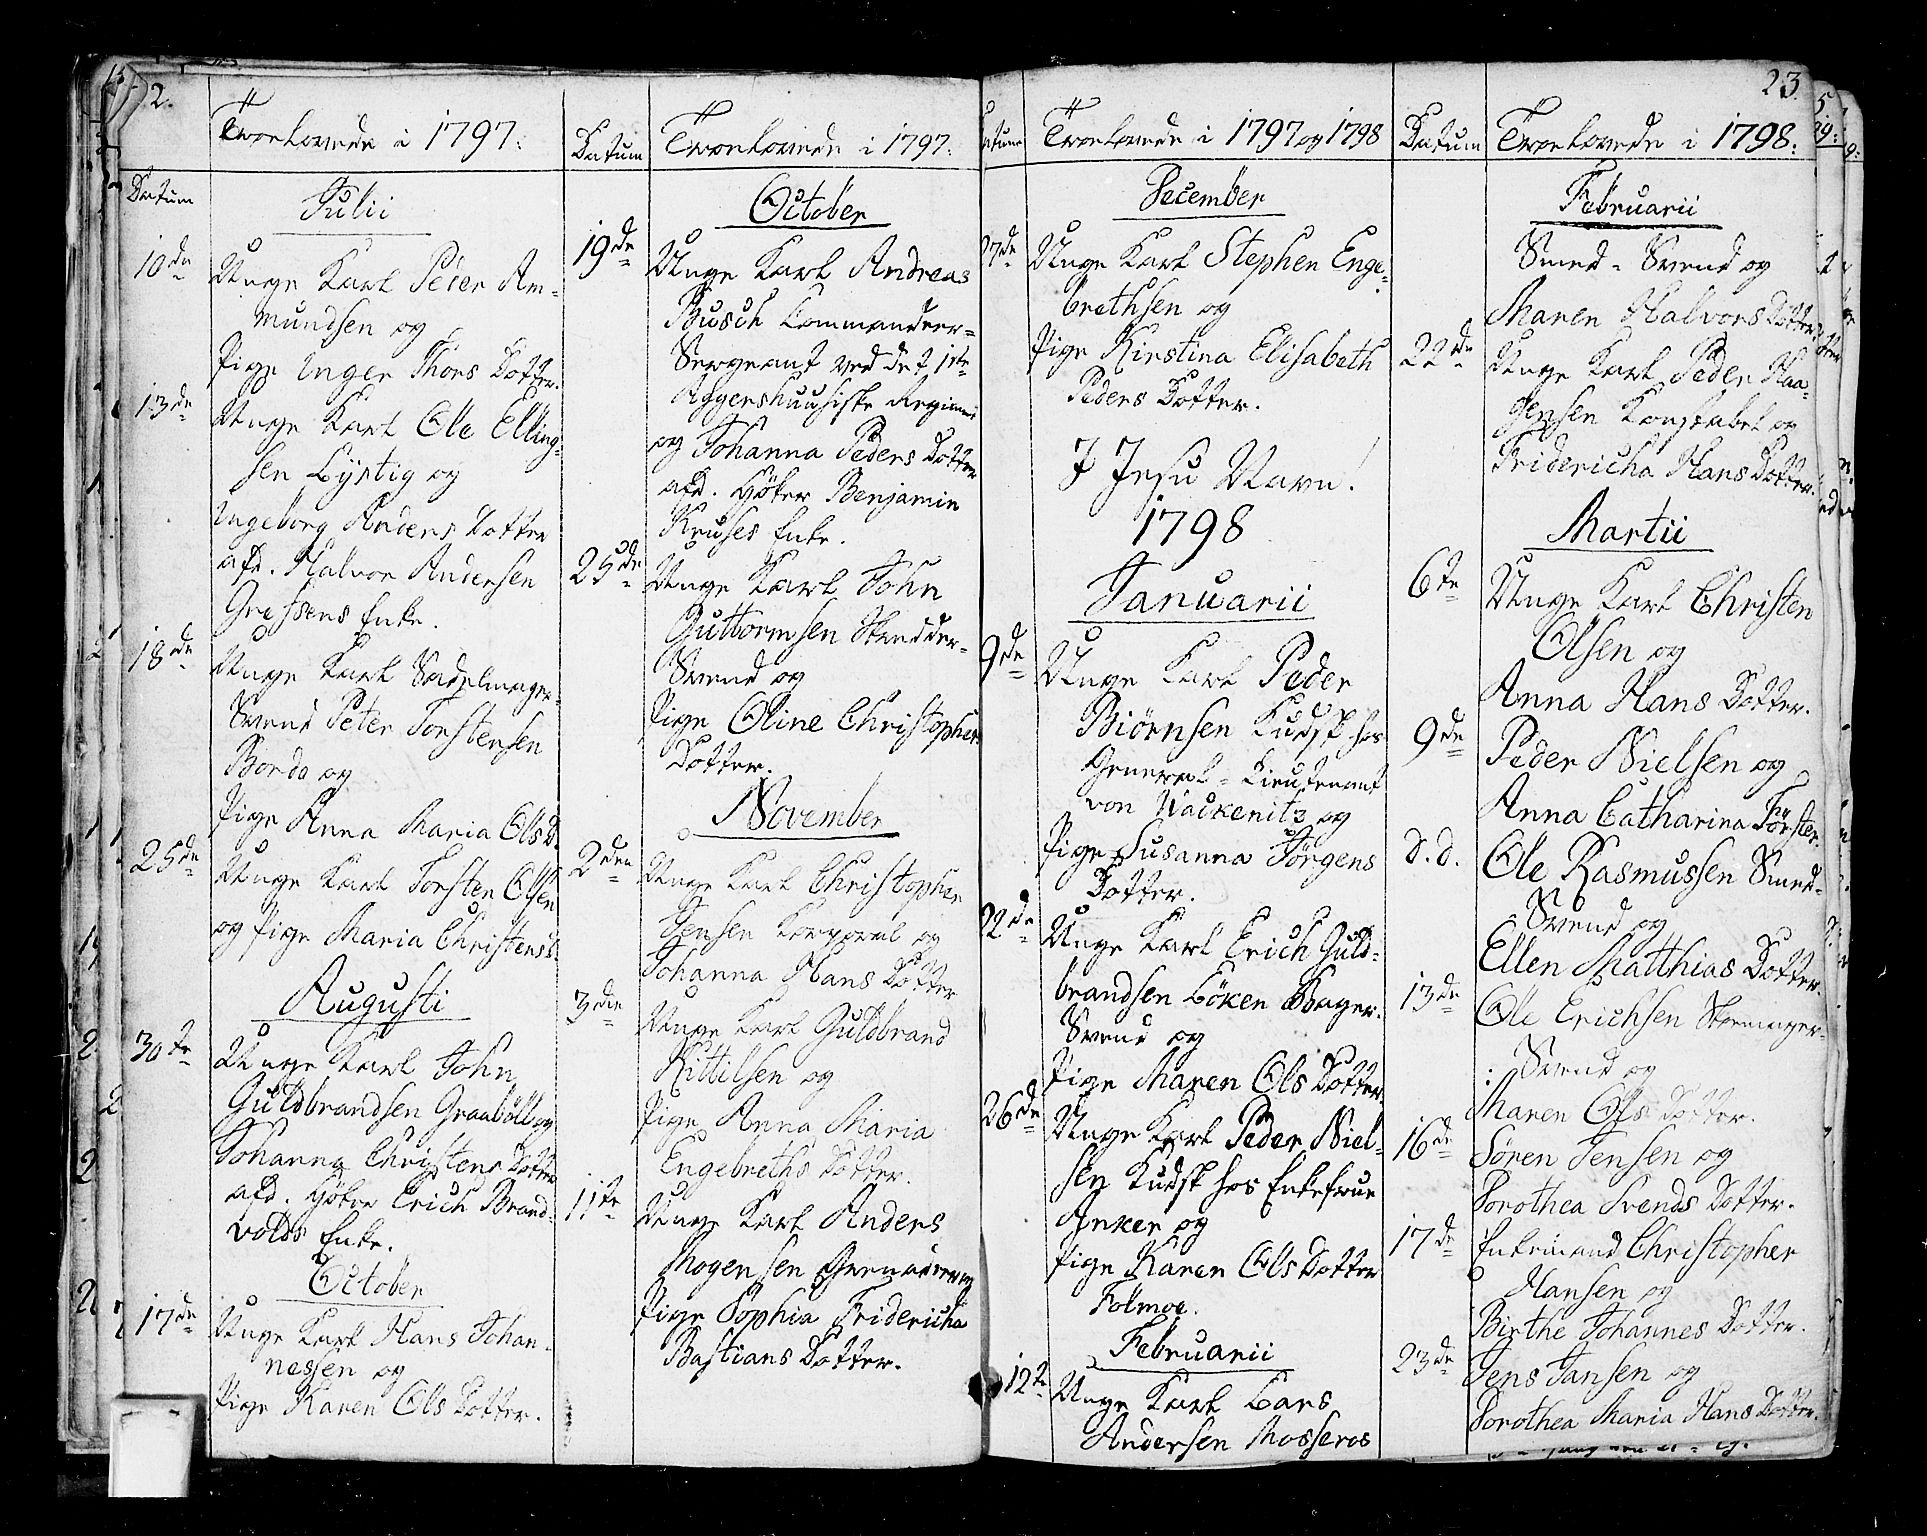 2.
Troelovede i 1797.
Datum
Julii
10de
Unge Karl Peder Am-
mundsen og
Pige Inger Thors Dotter.
13de
Unge Karl Ole Elling-
sen Lystig og
Ingeborg Anders Dotter
afd. Halvor Andersen
Enke.
18de
Unge Karl Sadelmager-
Svend Peter Torstensen
Borde og
Pige Anna Maria Ols D.
25de
Unge Karl Torsten Olsen
og Pige Maria Christens D.
Augusti
30te
Unge Karl John
Guldbrandsen Graabøll og
Johanna Christens Dotter
afd. Høker Erich Brand-
volds Enke.
October
17de
Unge Karl Hans Johan-
nessen og
Pige Karen Ols Dotter.
Datum
Troelovede i 1797.
October
19de
Unge Karl Andreas
Busch Commandeer-
Sergeant ved det 1ste
Aggershuusiske Regiment
og Johanna Peders Dotter
afd. Høker Benjamin
Kruses Enke.
25de
Unge Karl John
Guttormsen Skrædder-
Svend og
Pige Oline Christopher
Dotter.
November
2den
Unge Karl Christopher
Jensen Korporal og
Johanna Hans Dotter
3die
Unge Karl Guldbrand
Kittilsen og
Pige Anna Maria
Engebreths Dotter.
11te
Unge Karl Anders
Mogensen Grenadeer og
Pige Sophia Fridericha
Bastians Dotter.
Troelovede i 1797 og 1798
December
7de
Unge Karl Stephen Enge-
brethsen og
Pige Kirstina Elisabeth
Peders Dotter.
I Jesu Navn!
1798
Januarii
9de
Unge Karl Peder
Biørnsen Kudsk hos
General-Lieutenant
von Wackenitz og
Pige Susanna Jørgens
Dotter.
22de
Unge Karl Erich Guld-
brandsen Løken Bager-
Svend og
Pige Maren Ols Dotter
26de
Unge Karl Peder Niel-
sen Kudsk hos Enkefrue
Anker og
Pige Karen Ols Dotter
Folmoe.
Februarii
12te
Unge Karl Lars
Andersen Mosseros
23.
Datum
Troelovede i 1798.
Februarii
Smed-Svend og
Maren Halvors Dotter
22de
Unge Karl Peder Haa-
gensen Konstabel og
Fridericha Hans Dotter.
Martii
6te
Unge Karl Christen
Olsen og
Anna Hans Dotter.
9de
Peder Nielsen og
Anna Catharina Førster.
d. d.
Ole Rasmussen Smed-
Svend og
Ellen Matthias Dotter.
13de
Ole Erichsen Skoemager-
Svend og
Maren Ols Dotter.
16de
Søren Jensen og
Dorothea Svends Dotter.
17de
Enkemand Christopher
Hansen og
Birthe Johannes Dotter.
23de
Jens Jansen og
Dorothea Maria Hans Dotter.